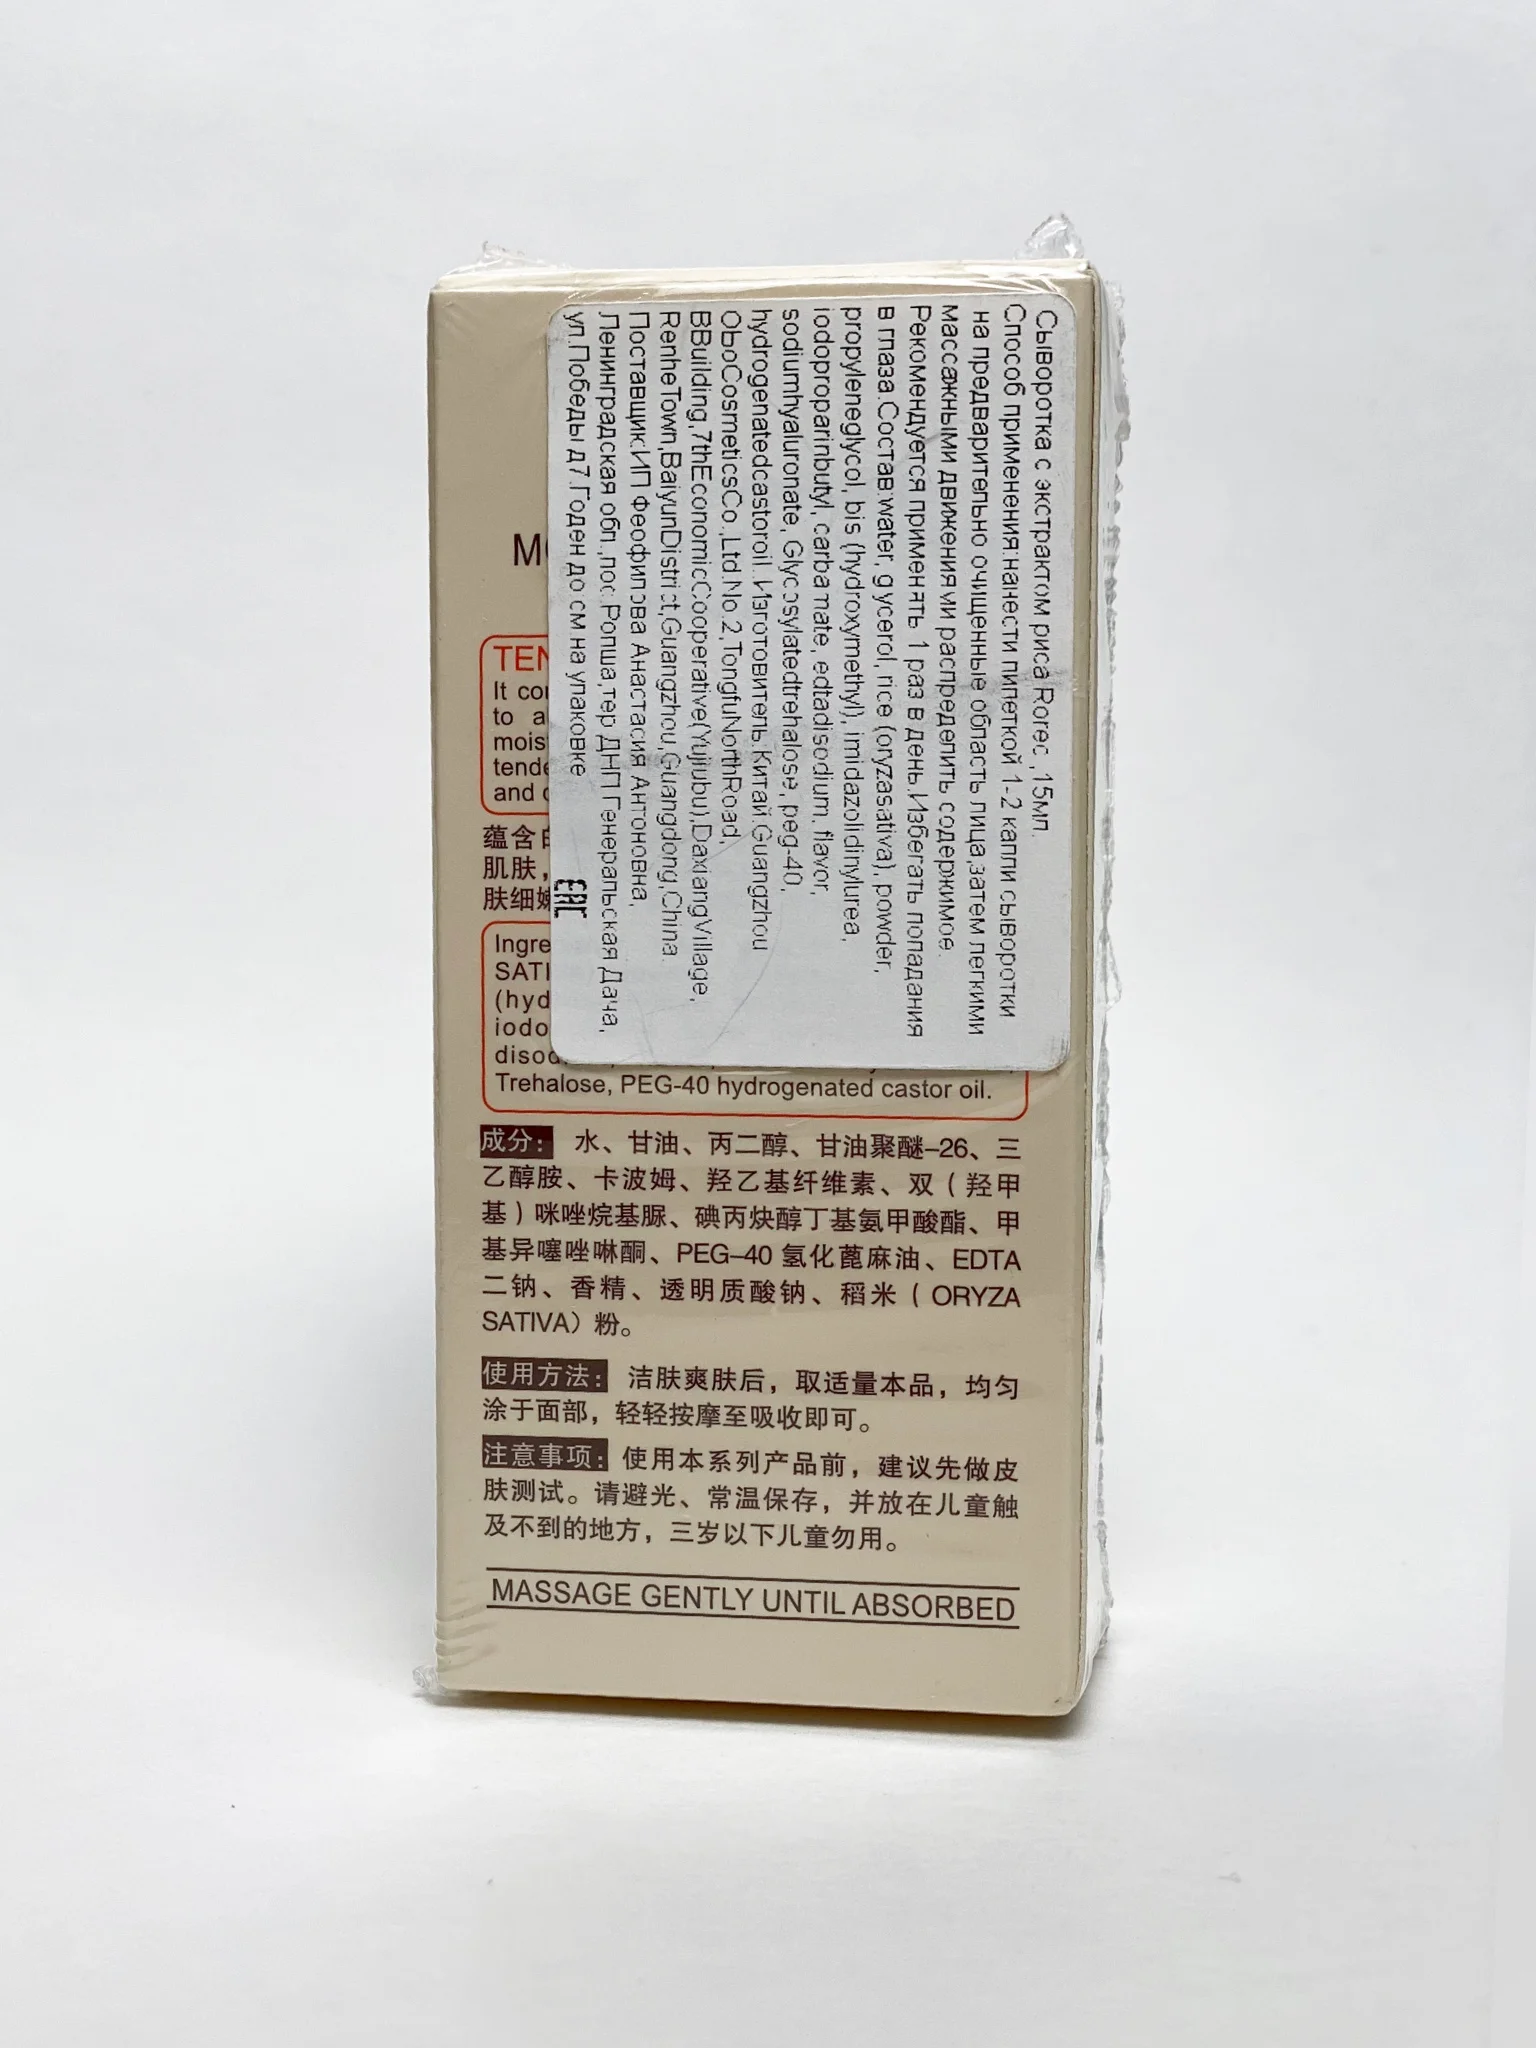 Сыворотка с экстрактом риса Rorec ,15мл.
Способ применения:нанести пипеткой 1-2 капли сыворотки
на предварительно очищенные область лица,затем легкими
массажными движениями распределить содержимое.
Рекомендуется применять 1 раз в день.Избегать попадания
в глаза.Состав:water, glycerol, rice (oryzasativa), powder,
propyleneglycol, bis (hydroxymethyl), imidazolidinylurea,
iodoproparinbutyl, carbamate, edtadisodium, flavor,
sodiumhyaluronate, Glycosylatedtrehalose, peg-40,
hydrogenatedcastoroil. Изготовитель:Китай.Guangzhou
OboCosmeticsCo.,Ltd.No.2,TongfuNorthRoad,
BBuilding,7thEconomicCooperative(Yujiubu),DaxiangVillage,
RenheTown,BaiyunDistrict,Guangzhou,Guangdong,China.
Поставщик:ИП Феофилова Анастасия Антоновна,
Ленинградская обл.,пос.Ропша,тер ДНП Генеральская Дача,
ул.Победы д7.Годен до:см на упаковке
EAC
TEN
It
to
and
蕴含
肌肤，
肤细
Trehalose, PEG-40 hydrogenated castor oil.
成分： 水、甘油、丙二醇、甘油聚醚–26、三
乙醇胺、卡波姆、羟乙基纤维素、双（羟甲
基）咪唑烷基脲、碘丙炔醇丁基氨甲酸酯、甲
基异噻唑啉酮、PEG–40 氢化蓖麻油、EDTA
二钠、香精、透明质酸钠、稻米（ORYZA
SATIVA）粉。
使用方法： 洁肤爽肤后，取适量本品，均匀
涂于面部，轻轻按摩至吸收即可。
注意事项： 使用本系列产品前，建议先做皮
肤测试。请避光、常温保存，并放在儿童触
及不到的地方，三岁以下儿童勿用。
MASSAGE GENTLY UNTIL ABSORBED